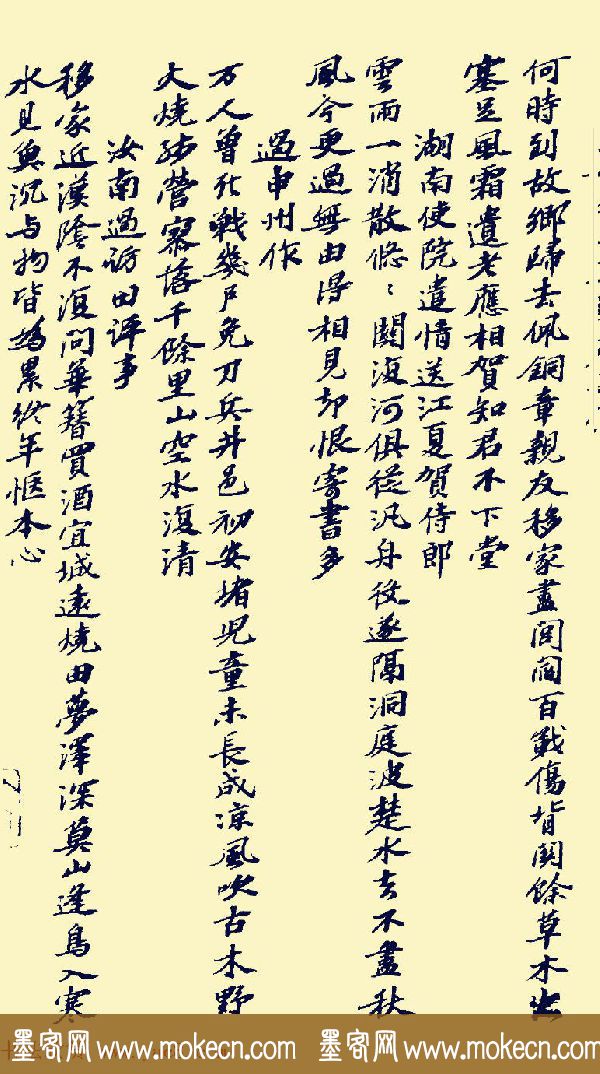 何時到故鄉歸去佩銅章親友移家盡閭閻百戰傷背關餘草木出
塞足風霜遺老應相賀知君不下堂
湖南使院遣情送江夏賀侍郎
雲雨一消散悠〻關復河俱從汎舟役遂隔洞庭波楚水去不盡秋
風今更過無由得相見却恨寄書多
過申州作
万人曾死戰幾戶免刀兵井邑初安堵兒童未長成涼風吹古木野
火燒殘營寥落千餘里山空水復清
汝南過訪田評事
移家近漢陰不復問華簪買酒宜城遠燒田夢澤深莫山逢鳥入寒
水見魚沉与物皆為累終年愜本心
墨客网 www.mokecn.com 墨客网 www.mokecn.com